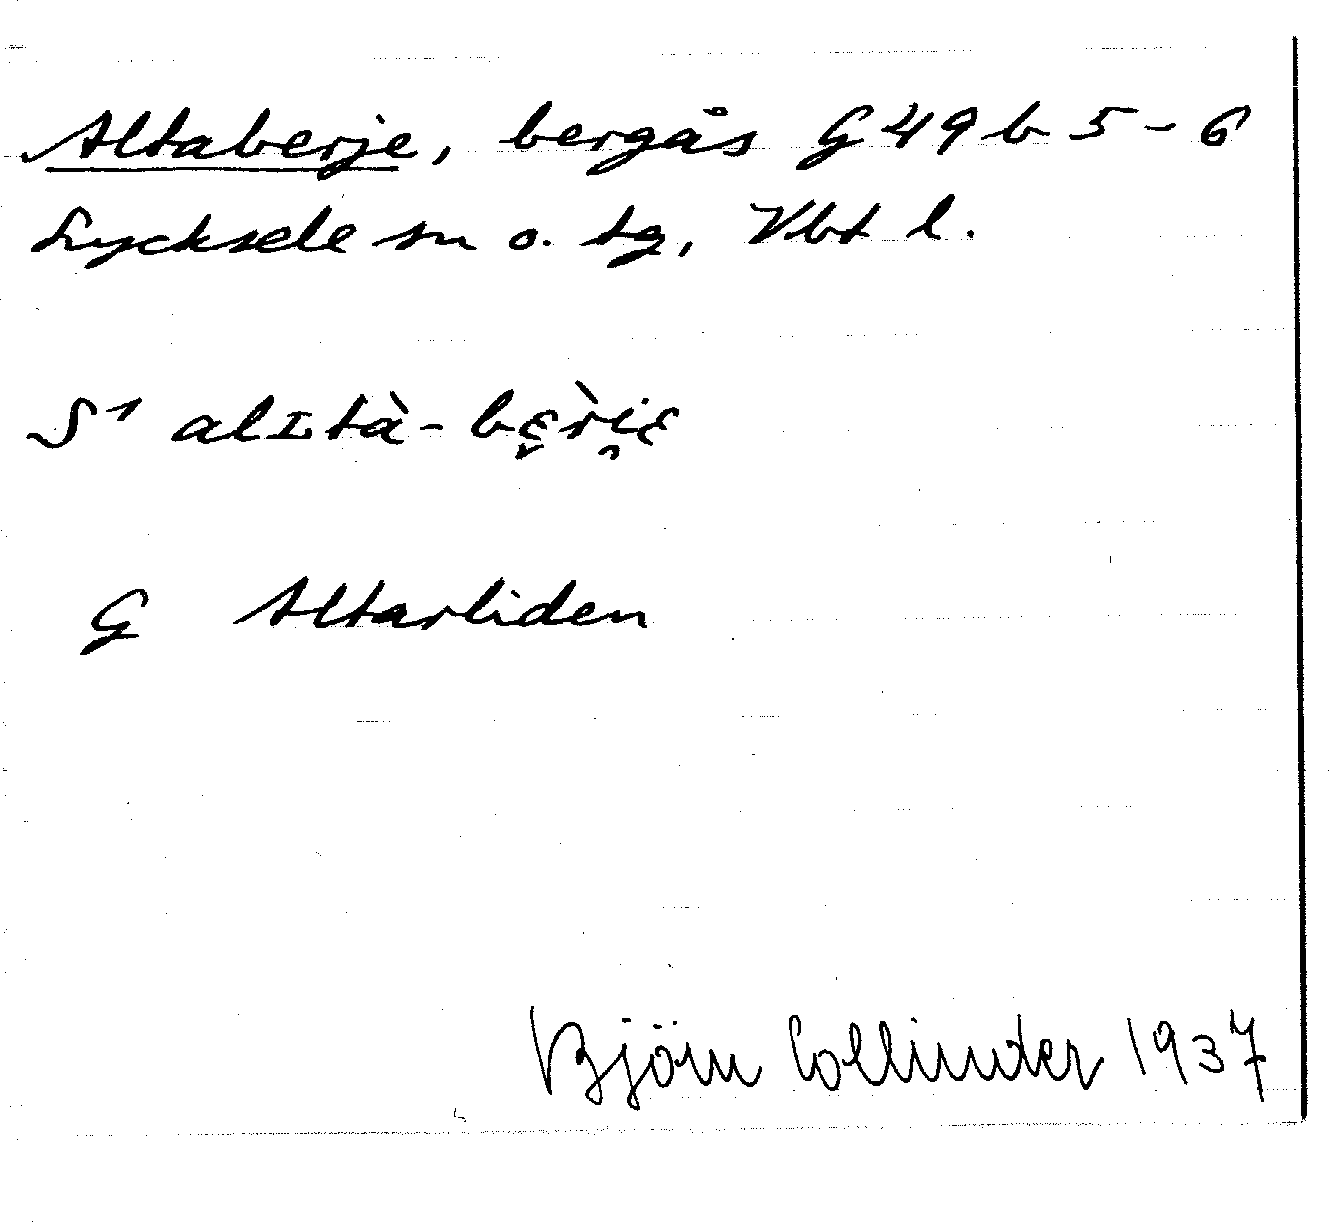 Altaberje, bergås G 49 b 5-6
Lycksele sn o. tg, Vbt l.
S¹ alɪtà-bɛ̬r̀i̯ɛ
G Altarliden
Björn Collinder 1937